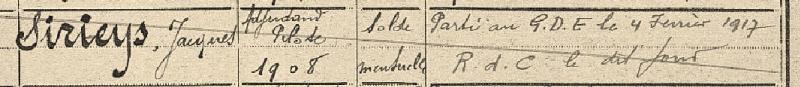 Sirieys, Jacques Adjudant Pilote Solde Parti au G.D.E le 4 Février 1917
1908 mensuelle R.d.C le dit jour